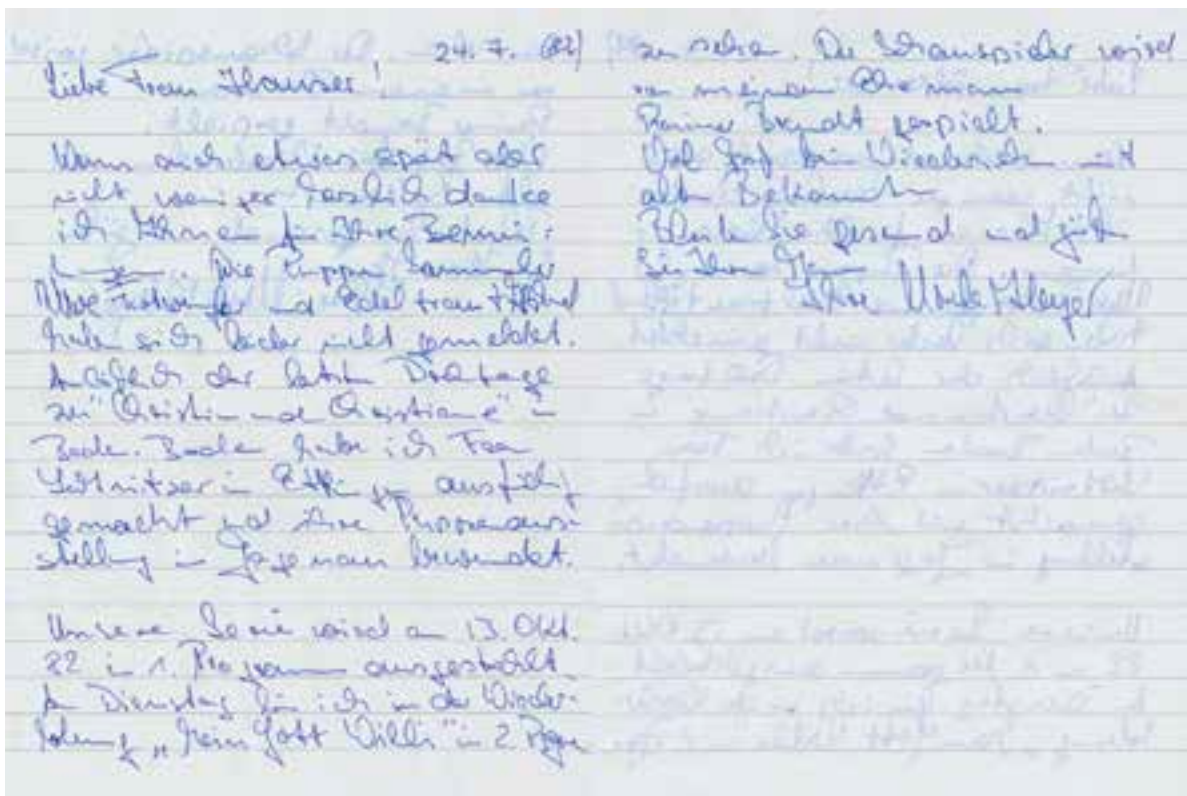 24. 7. (82)
Liebe Frau Hauser!
Wenn auch etwas spät aber
nicht weniger herzlich danke
ich Ihnen für Ihre Bemüh-
ungen. Die Puppen Sammler
und Edeltraut
haben sich leider nicht gemeldet.
Anläßlich der letzten Drehtage
zu "Christian und Christiane" in
Baden-Baden habe ich Frau
in Ettlingen ausfindig
gemacht und ihre Puppenaus-
stellung in Hagenau bewundert.
Unsere Serie wird am 13. Okt.
82 im 1. Programm ausgestrahlt.
Am Dienstag bin ich in der Wieder-
holung „Mein Gott Willi" in 2. Progr.
zu sehen. Der Schauspieler wird
von meinem Ehemann
Rainer Brandt gespielt.
Viel Spaß beim Wiedersehen mit
alten Bekannten
Bleiben Sie gesund und grüßen
Sie Ihren Mann
Ihre Ursula Heyer